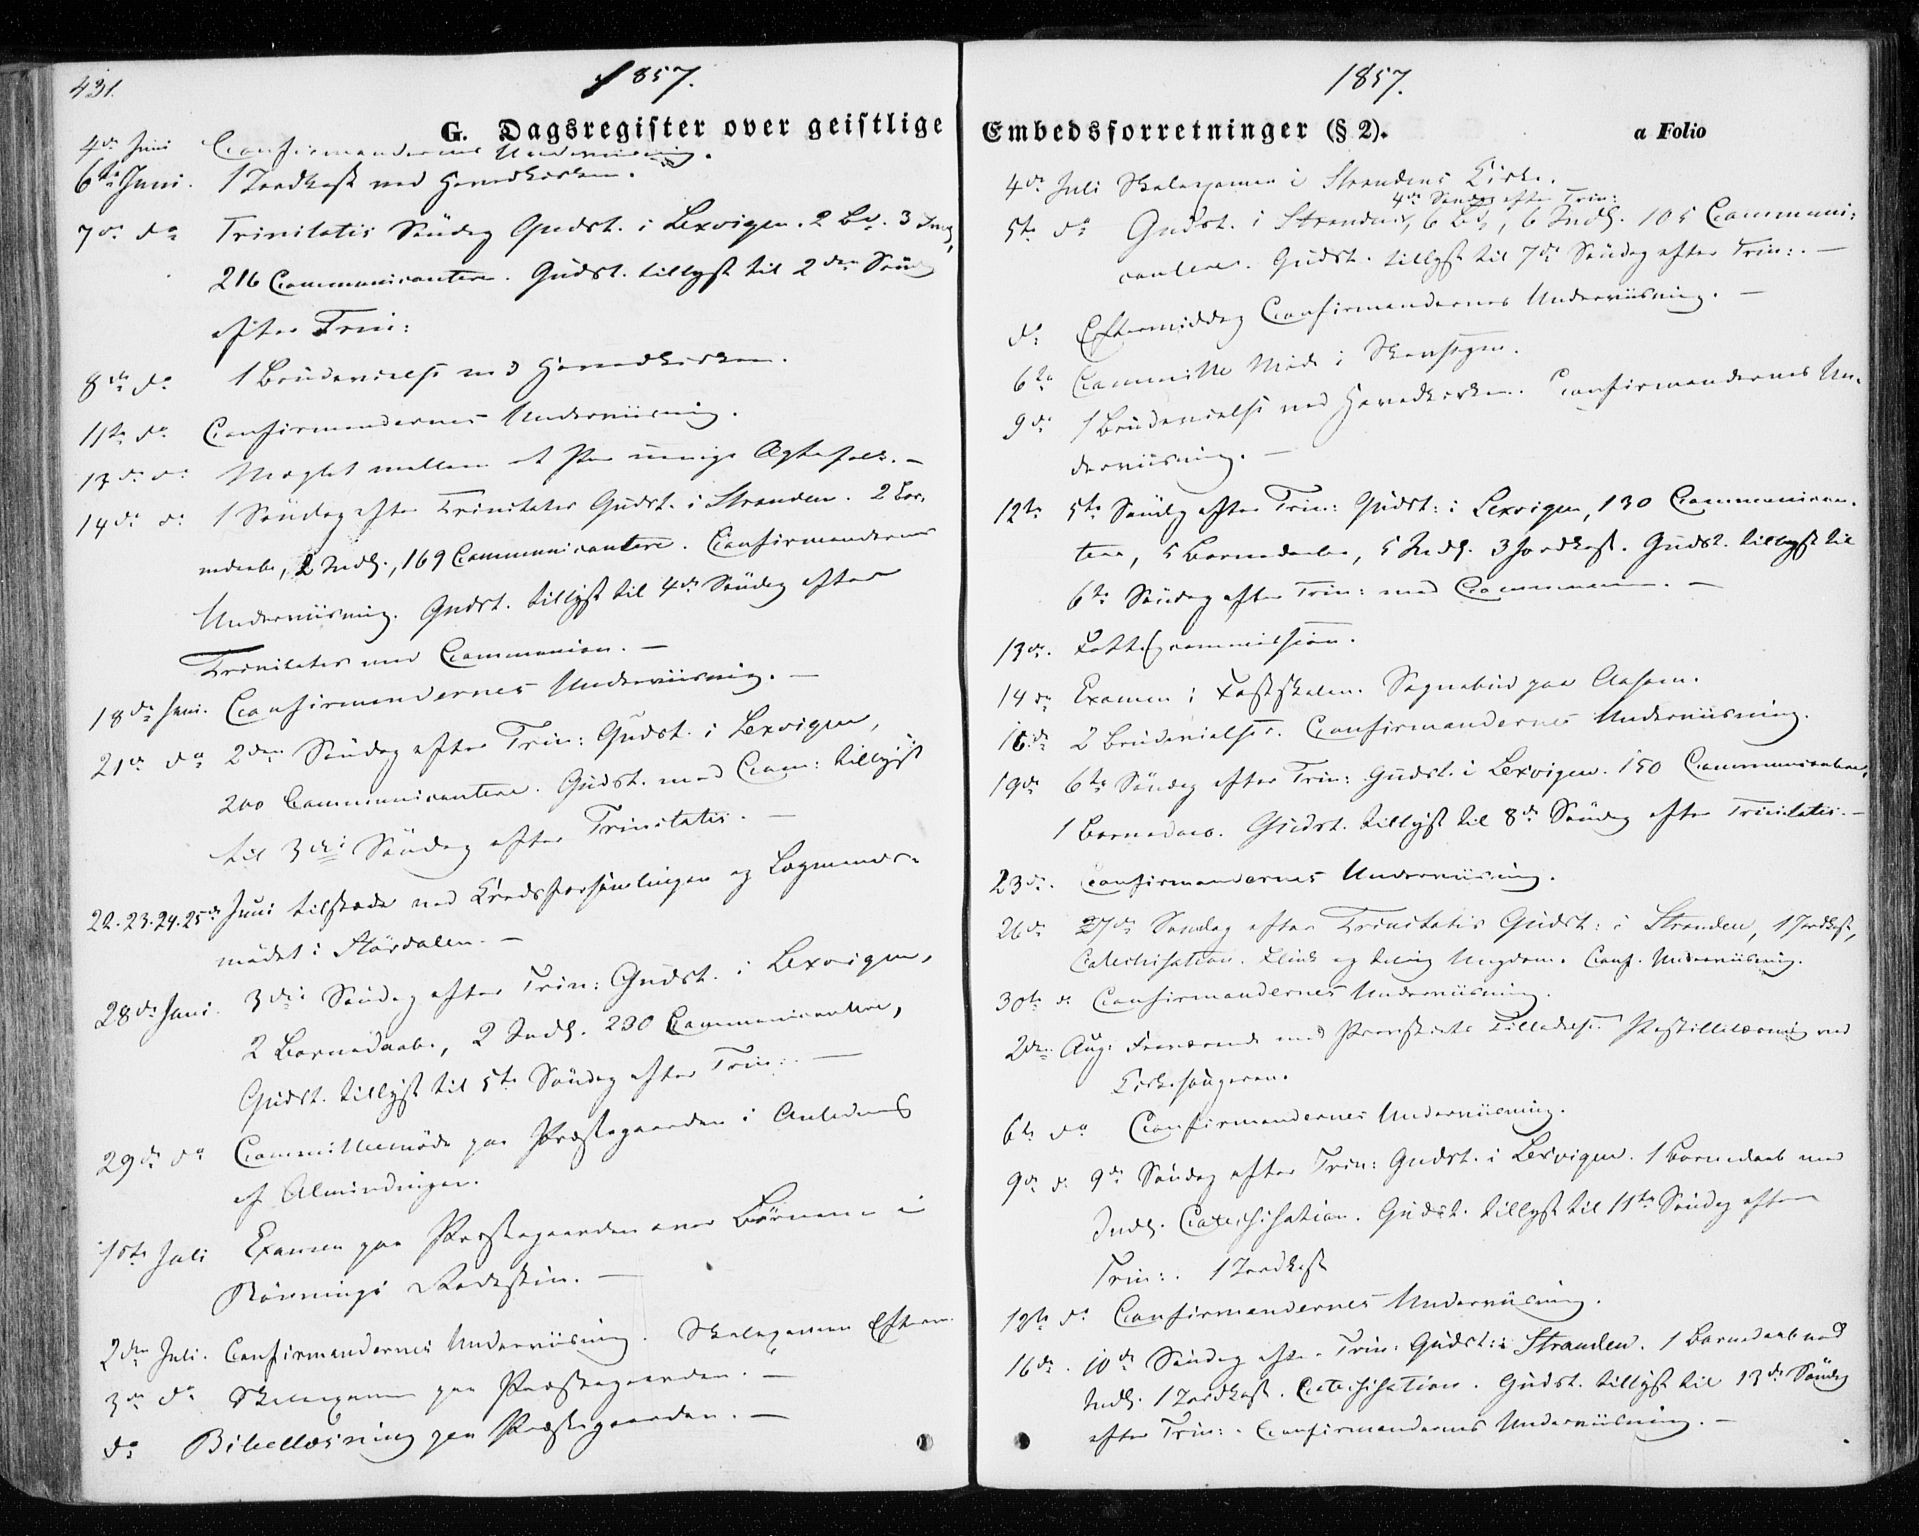 431.
1857.
G. Dagsregister over geistlige
4de Juni Confirmandernes Underviisning.
6te Juni. 1 Jordkast ved Hovedkirken.
7de do Trinitatis Søndag Gudst. i Lexvigen. 2 Bd. 3 Indl,
216 Communicantere. Gudst. tillyst til 2den Sønd
efter Trin:
8de do 1 Brudevielse ved Hovedkirken.
11te do Confirmandernes Underviisning.
13de do Mæglet mellem et Par uenige Ægtefolk. –
14de do 1 Søndag efter Trinitatis Gudst. i Stranden. 2 Bar-
nedaab, 2 Indl., 169 Communicantere. Confirmandernes
Underviisning. Gudst. tillyst til 4de Søndag efter
Trinitatis med Communion. –
18de Juni. Confirmandernes Underviisning. –
21de do 2den Søndag efter Trin: Gudst. i Lexvigen,
200 Communicantere. Gudst. med Com: tillyst
til 3die Søndag efter Trinitatis. –
22. 23. 24. 25de Juni tilstæde ved Kredsforsamlingen og Lagmands-
mødet i Størdalen. –
28de Juni. 3die Søndag efter Trin: Gudst. i Lexvigen,
2 Barnedaab, 2 Indl. 230 Communicantere,
Gudst. tillyst til 5te Søndag efter Trin: –
29de do Committeemøde paa Præstegaarden i Anledning
af Almindingen.
1ste Juli Examen paa Præstegaarden over Børnene i
Rodeskin. –
2den Juli. Confirmandernes Underviisning. Skolexamen Efterm.
3de do Skolexamen paa Præstegaarden. –
do Bibellæsning paa Præstegaarden. –
1857.
Embedsforretninger (§ 2).
a Folio
4de Juli Skolexamen i Strandens Kirke.
4de Søndag efter Trin:
5te do Gudst. i Stranden, 6 Bd, 6 Indl. 105 Communi-
cantere. Gudst. tillyst til 7de Søndag efter Trin: –
do Eftermiddag Confirmandernes Underviisning. –
6te Committe Møde i
9de 1 Brudevielse ved Hovedkirken. Confirmandernes Un-
derviisning. –
12te 5te Søndag efter Trin: Gudst: i Lexvigen, 130 Communican-
tere, 5 Barnedaab, 5 Indl. 3 Jordkast. Gudst. tillyst til
6te Søndag efter Trin: med Communion. –
13de. Fattigcommission.
14de Examen i Fastskolen. Sognebud paa Aasem.
16de 2 Brudevielser. Confirmandernes Underviisning.
19de 6te Søndag efter Trin: Gudst. i Lexvigen. 150 Communicantere,
1 Barnedaab. Gudst. tillyst til 8de Søndag efter Trinitatis. –
23de. Confirmandernes Underviisning.
26de 7de Søndag efter Trinitatis Gudst: i Stranden, 1 Jordkast,
Catechisation. Flink og Ungdom. Conf. Underviisning.
30te do Confirmandernes Underviisning.
2den Aug: Fraværende med Provstiets Tilladelse Postillelæsning ved
Kirkesangeren.
6te do Confirmandernes Underviisning.
9de do 9de Søndag efter Trin: Gudst. i Lexvigen. 1 Barnedaab med
Indl. Catechisation. Gudst. tillyst til 11te Søndag efter
Trin:. 1 Jordkast
12te do Confirmandernes Underviisning.
16de. 10de Søndag efter Trin: Gudst: i Stranden. 1 Barnedaab med
Indl. 1 Jordkast. Catechisation. Gudst. tillyst til 13de Søndag
efter Trin: Confirmandernes Underviisning. –